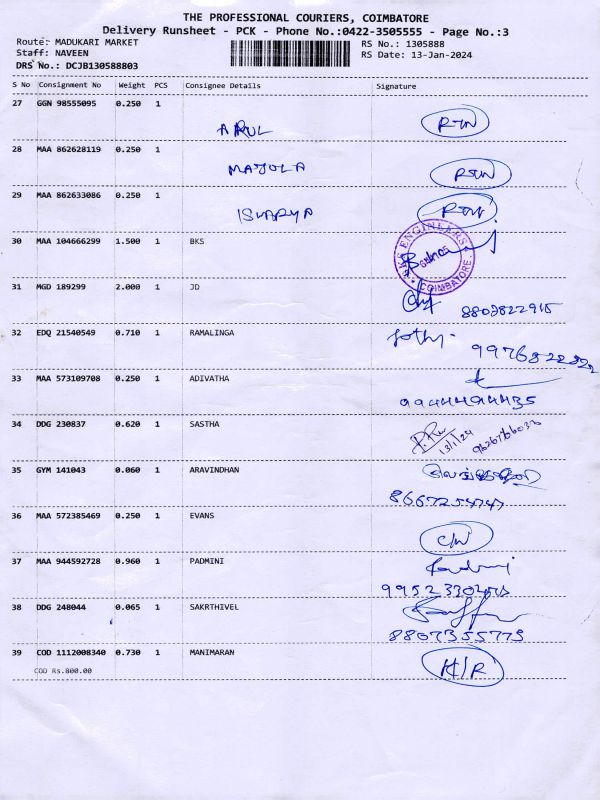 THE PROFESSIONAL COURIERS, COIMBATORE
Delivery Runsheet - PCK - Phone No.:0422-3505555 - Page No.:3
Route: MADUKARI MARKET
RS No.: 1305888
Staff: NAVEEN
RS Date: 13-Jan-2024
DRS No.: DCJB130588803
S No Consignment No Weight PCS Consignee Details Signature
27 GGN 98555095 0.250 1
ARUL RTN
28 MAA 862628119 0.250 1
MAJOLA RTN
29 MAA 862633086 0.250 1
ISWARYA RTN
30 MAA 104666299 1.500 1 BKS
ENGINEERS
COIMBATORE
31 MGD 189299 2.000 1 JD
8803822915
32 EDQ 21540549 0.710 1 RAMALINGA
Jothi
33 MAA 573109708 0.250 1 ADIVATHA
9944494435
34 DDG 230837 0.620 1 SASTHA
13/1/24
35 GYM 141043 0.060 1 ARAVINDHAN
8667254747
36 MAA 572385469 0.250 1 EVANS
C/N
37 MAA 944592728 0.960 1 PADMINI
Padmini
38 DDG 248044 0.065 1 SAKRTHIVEL
8807355773
39 COD 1112008340 0.730 1 MANIMARAN
H/R
COD Rs.800.00